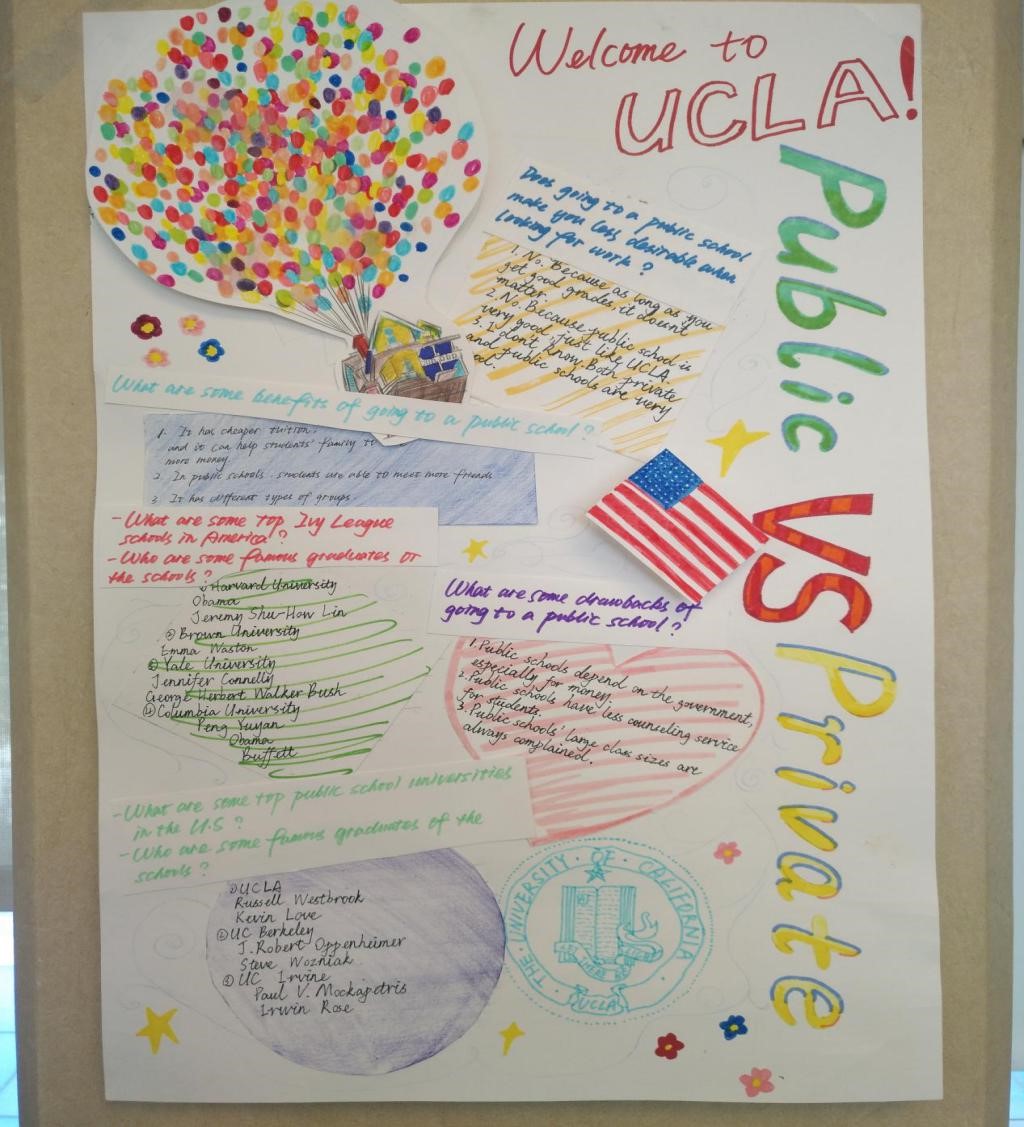 Welcome to
UCLA!
Public
VS
Private
Does going to a public school
make you less desirable when
looking for work?
1. No. Because as long as you
get good grades, it doesn't
matter.
2. No. Because public school is
very good just like UCLA.
3. I don't know. Both private
and public schools are very
What are some benefits of going to a public school?
1. It has cheaper tuition.
and it can help students' family to
more money.
2. In public schools. students are able to meet more friends
3. It has different types of groups.
- What are some top Ivy League
schools in America?
- Who are some famous graduates or
the schools?
① Harvard University
Obama
Jeremy Shu-How Lin
② Brown University
Emma Waston
③ Yale University
Jennifer Connelly
George Herbert Walker Bush
④ Columbia University
Peng Yuyan
Obama
Buffett
What are some drawbacks of
going to a public school?
1. Public schools depend on the government,
especially for money.
2. Public schools have less counseling service
for students.
3. Public schools' large class sizes are
always complained.
- What are some top public school universities
in the U.S?
- Who are some famous graduates of the
schools?
① UCLA
Russell Westbrook
Kevin Love
② UC Berkeley
J. Robert Oppenheimer
Steve Wozniak
③ UC Irvine
Paul V. Mockapetris
Irwin Rose
THE UNIVERSITY OF CALIFORNIA
UCLA